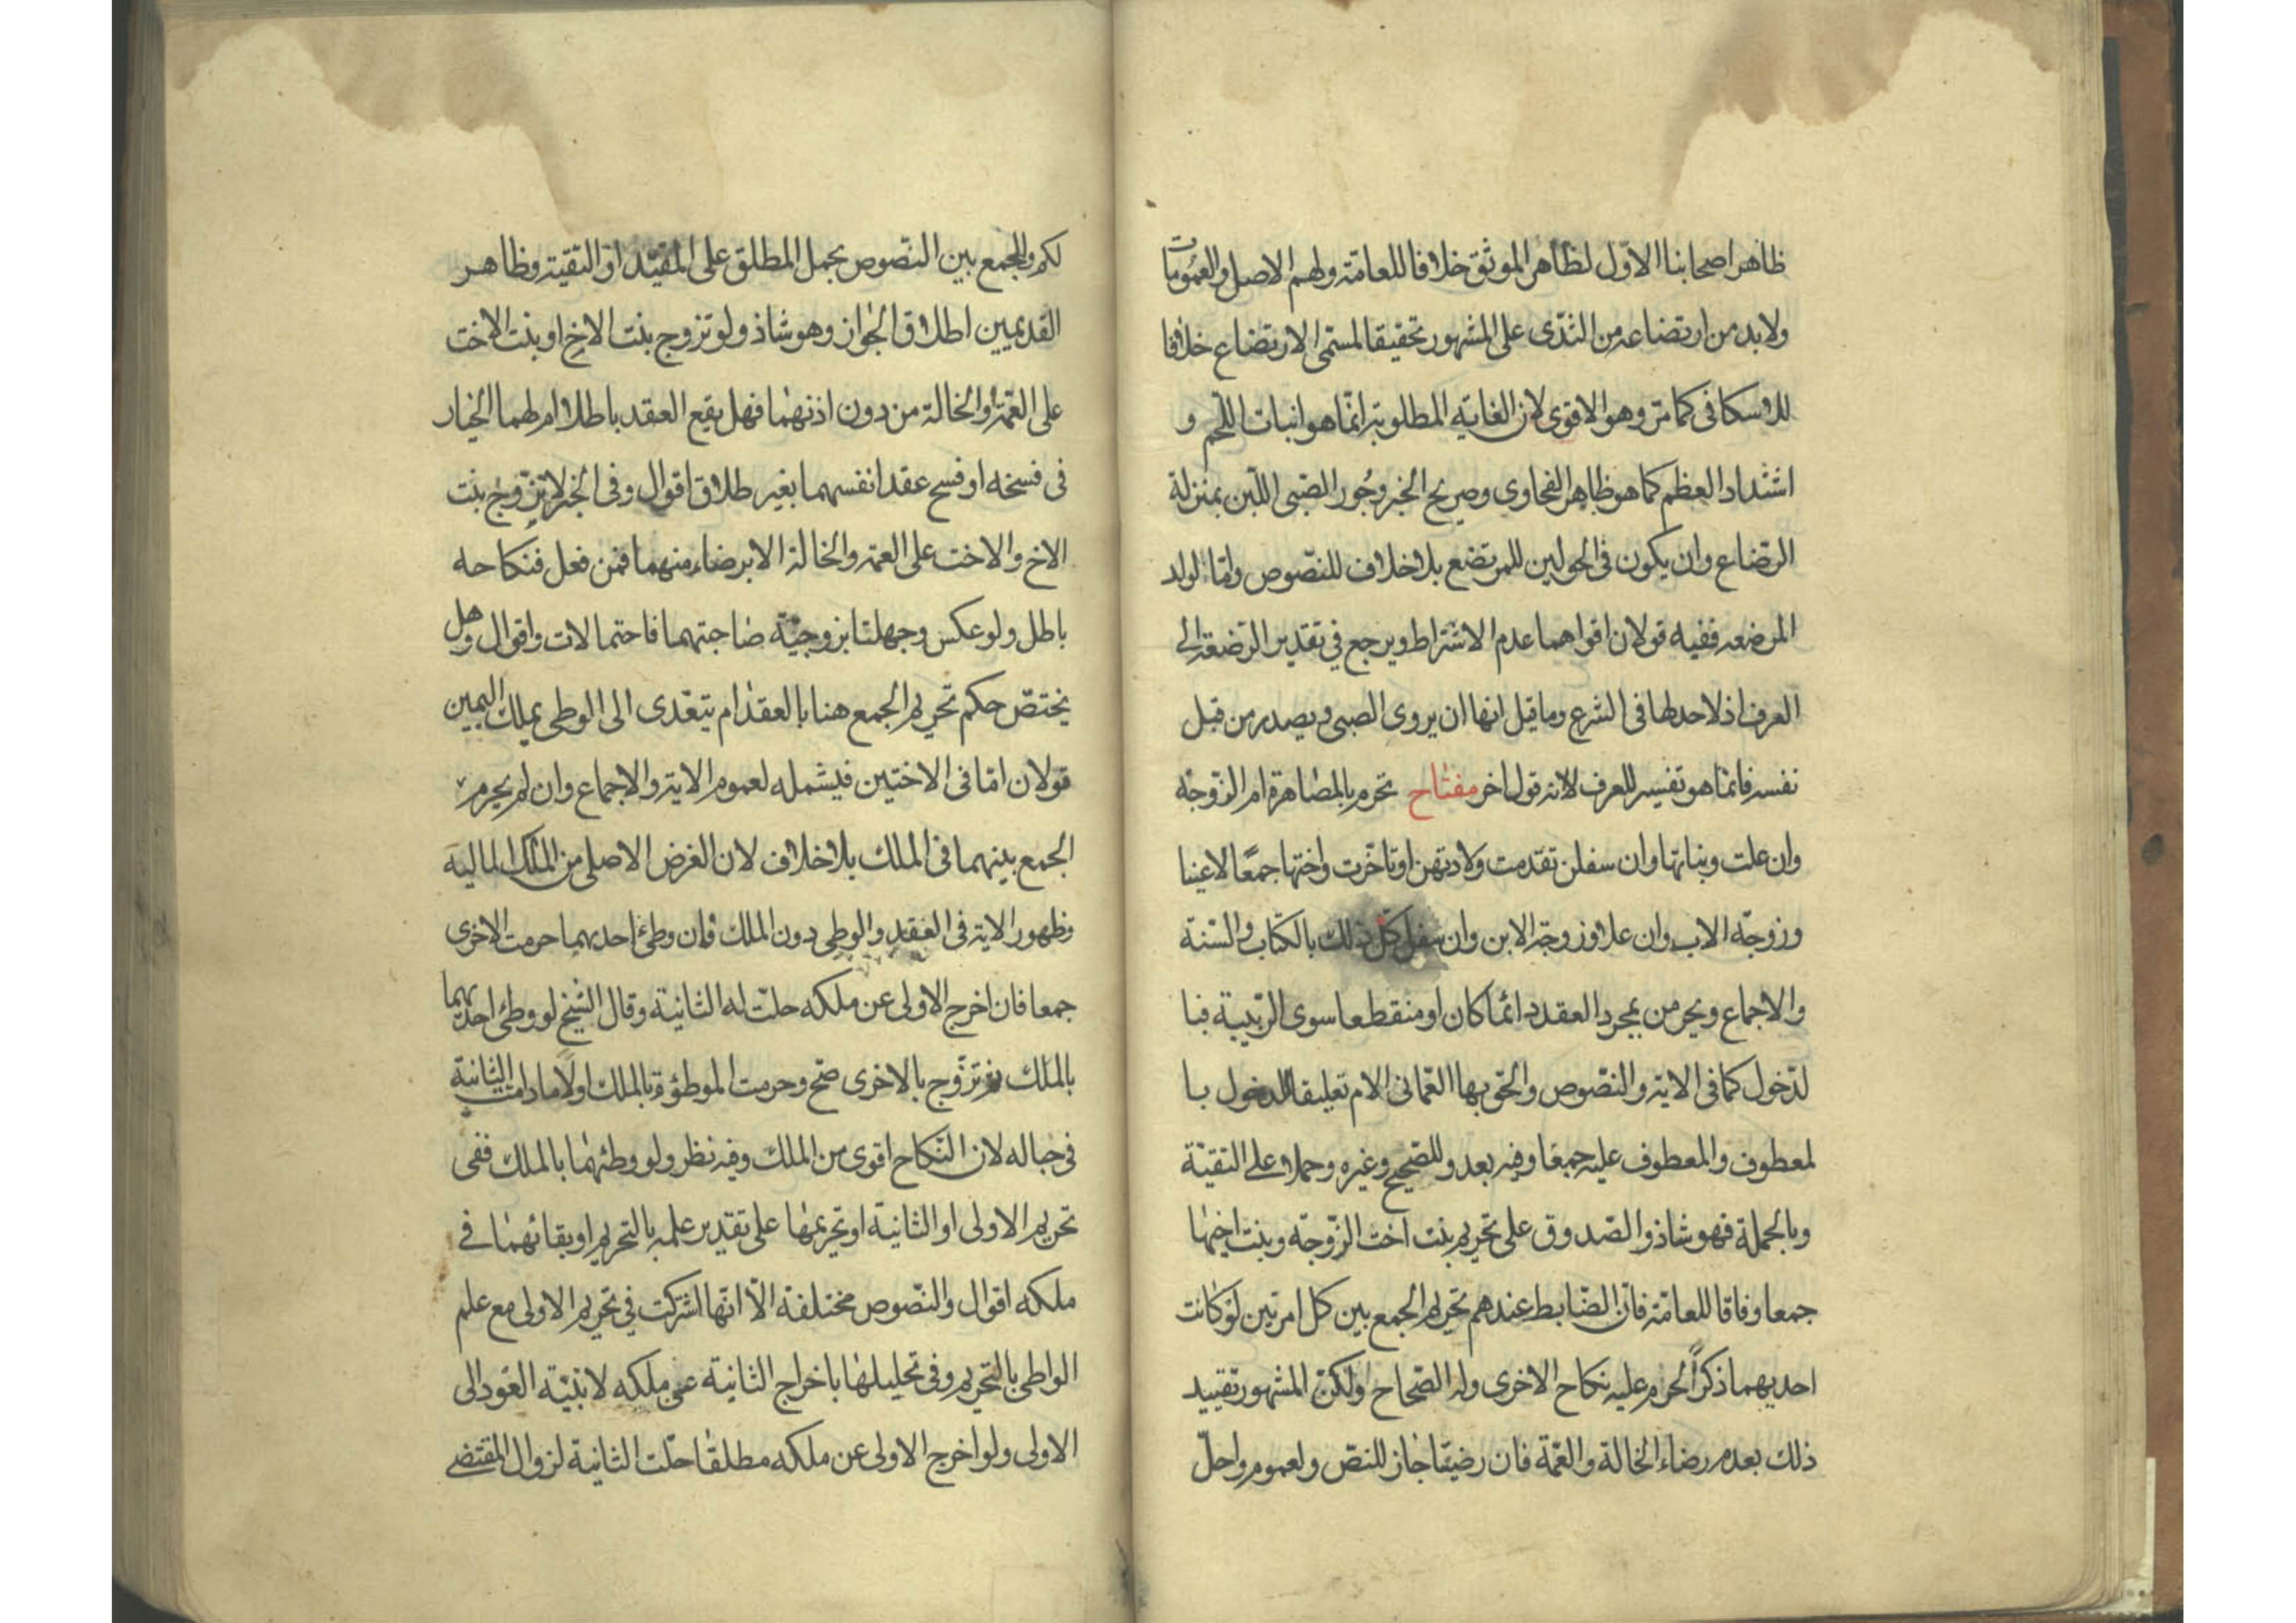 ظاهر اصحابنا الاوّل لظاهر الموثق خلافا للعامّة ولهم الاصل والعمومات
ولا بد من ارتضاعه من الثدى على المشهور تحقيقا لمسمى الارتضاع خلافا
للاسكافى كما مرّ وهو الاقوى لان الغاية المطلوبة انّما هو انبات اللّحم و
اشتداد العظم كما هو ظاهر الفحاوى وصريح الخبر وجور الصّبى اللّبن بمنزلة
الرّضاع وان يكون فى الحولين للمرتضع بلا خلاف للنّصوص وامّا الولد
المرضعه ففيه قولان اقواهما عدم الاشتراط ويرجع فى تقدير الرّضعة الى
العرف اذ لا حد لها فى الشرع وما قيل انها ان يروى الصبى ويصدر من قبل
نفسه فانّما هو تفسير للعرف لا انه قول اخر مفتاح تحرم بالمصاهرة ام الزّوجة
وان علت وبناتها وان سفلن تقدمت ولادتهن او تاخّرت واختها جمعًا لا عينا
وزوجة الاب وان علا وزوجة الابن وان سفل كلّ ذلك بالكتاب والسّنة
والاجماع ويحرمن بمجرد العقد دائما كان او منقطعا سوى الرّبيبة فبا
لدّخول كما فى الاية والنّصوص والحق بها العّمانى الام تعليقا للدخول با
لمعطوف والمعطوف عليه جميعًا وفيه بعد وللصّحيح وغيره وحملا على التقيّة
وبالجملة فهو شاذ والصّدوق على تحريم بنت اخت الزّوجة وبنت اخيها
جمعا وفاقا للعامّة فانّ الضّابط عندهم تحريم الجمع بين كل امرتين لو كانت
احديهما ذكرًا لحرم عليه نكاح الاخرى وله الصّحاح ولكنّ المشهور تقييد
ذلك بعدم رضاء الخالة والعّمة فان رضيتا جاز للنصّ ولعموم واحلّ
لكم وللجمع بين النّصوص بحمل المطلق على المقيّد او التقية وظاهر
القديميين اطلاق الجواز وهو شاذ ولو تزوج بنت الاخ او بنت الاخت
على العّمة والخالة من دون اذنهما فهل يقع العقد باطلا ام لهما الخيار
فى فسخه او فسح عقد انفسهما بغير طلاق اقوال وفى الخبر لا تزوج بنت
الاخ والاخت على العمة والخالة الا برضاء منهما فمن فعل فنكاحه
باطل ولو عكس وجهلتا بزوجيّة صاحبتهما فاحتمالات واقوال وهل
يختصّ حكم تحريم الجمع هنا بالعقد ام يتعّدى الى الوطى بملك اليمين
قولان امّا فى الاختين فيشمله لعموم الاية والاجماع وان لم يحرم
الجمع بينهما فى الملك بلا خلاف لان الغرض الاصلى من الملك المالية
وظهور الاية فى العقد والوطى دون الملك فان وطئ احديهما حرمت الاخرى
جمعا فان اخرج الاولى عن ملكه حلّت له الثانية وقال الشيخ لو وطئ احديهما
بالملك ثم تزوّج بالاخرى صحّ وحرمت الموطؤة بالملك اولًا ما دامت الثانية
فى حباله لان النّكاح اقوى من الملك وفيه نظر ولو وطئهما بالملك ففى
تحريم الاولى او الثانية او تحريمها على تقدير علمه بالتحريم او بقائهما فى
ملكه اقوال والنّصوص مختلفة الّا انّها اشتركت فى تحريم الاولى مع علم
الواطى بالتحريم وفى تحليلها باخراج الثانية عن ملكه لا بنيّة العود الى
الاولى ولو اخرج الاولى عن ملكه مطلقا حلّت الثانية لزوال المقتضى